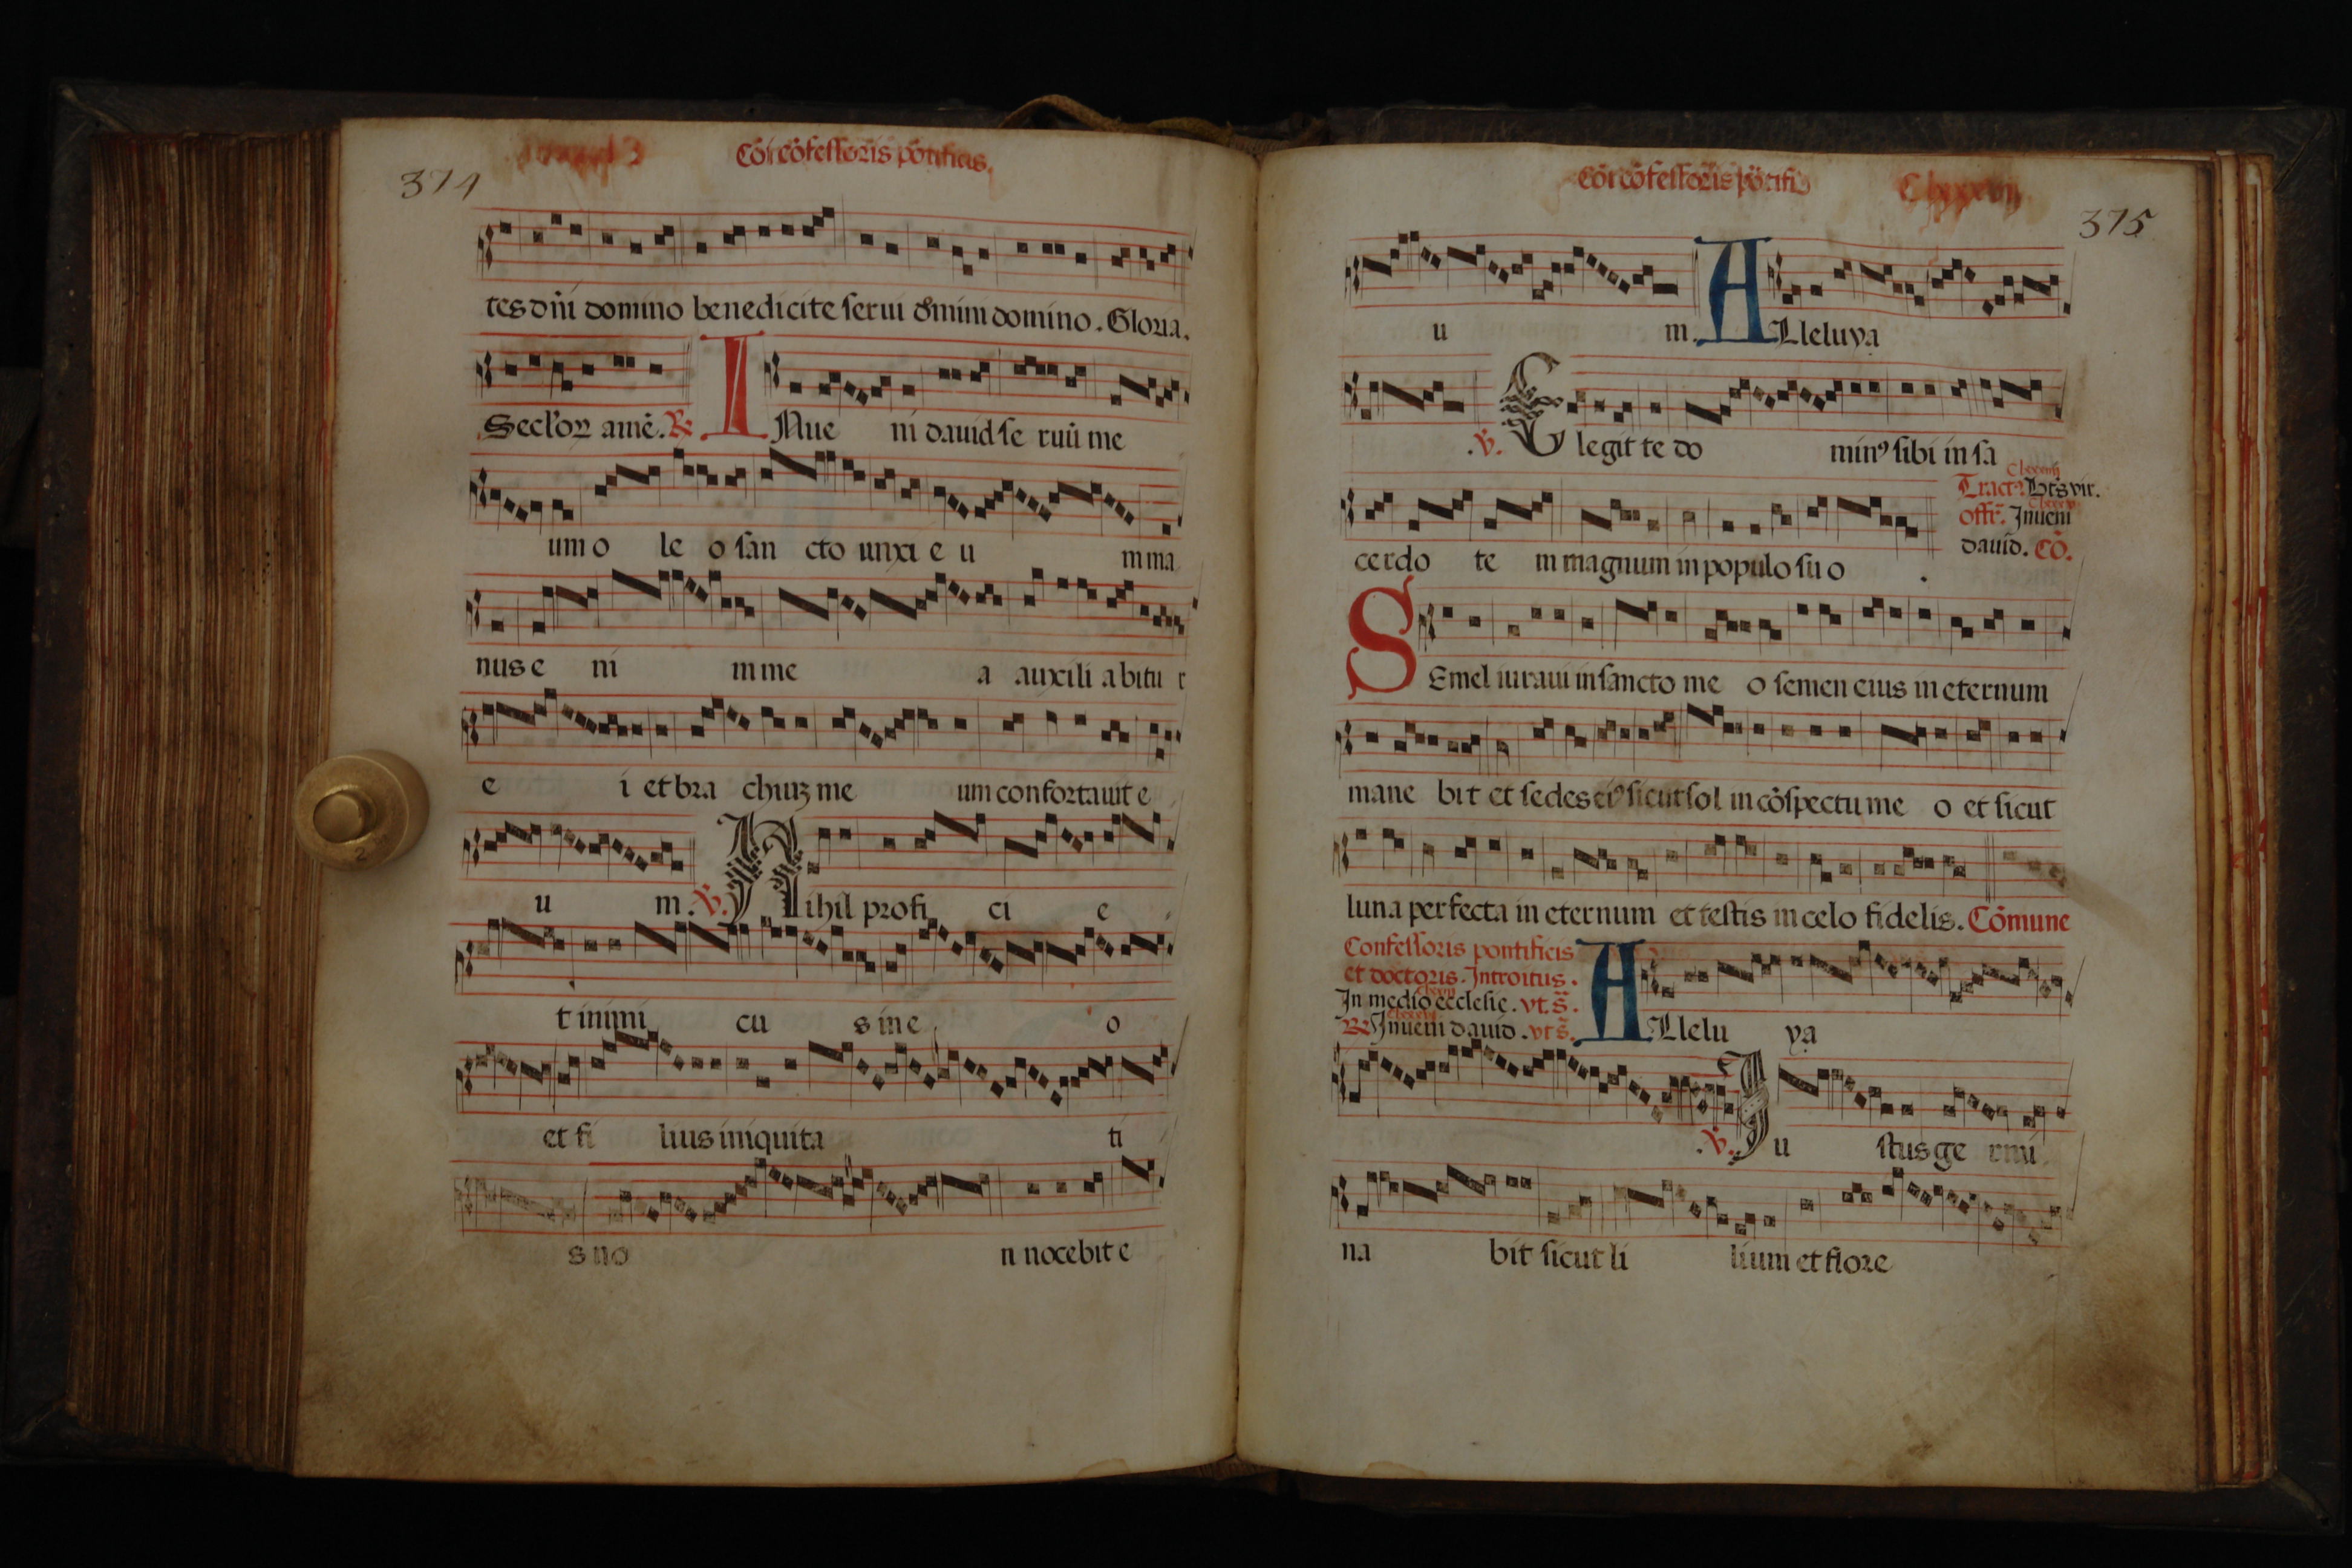 374
Cōi cōfessoris pōtificis.
tes dn̄i domino benedicite serui dōmini domino. Gloria.
Seclꝰoꝝ amē. R̄ INue ni dauid se ruū me
um o le o san cto unxi e u m ma
nus e ni m me a auxili abitu r
e i et bra chiuꝫ me um confortauit e
u m. V̄. Nihil profi ci e
t inimi cu s in e o
et fi lius iniquita ti
s no n nocebit e
Cōi cōfessoris pōtifi
375
u m. ALleluya
.V̄. Elegit te do minꝰ sibi in sa
cerdo te m magnum in populo su o .
Tractꝰ. Bt̄s vir.
offr̄. Inueni
dauid. Cō.
SEmel iuraui in sancto me o semen eius in eternum
mane bit et sedes eiꝰ sicut sol in cōspectu me o et sicut
luna perfecta in eternum et testis in celo fidelis. Cōmune
Confessoris pontificis
et doctoris. Introitus.
In medio ecclesie. vt. s̄.
R̄ Inueni dauid. vt s̄. ALlelu ya
.V̄. Iu stus ge rmi
na bit sicut li lium et flore